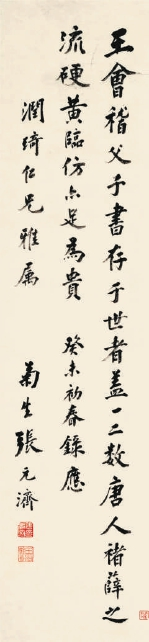 王會稽父子書存于世者蓋一二數唐人褚薛之
流硬黃臨仿亦足為貴 癸未初春錄應
潤綺仁兄雅属
菊生張元濟